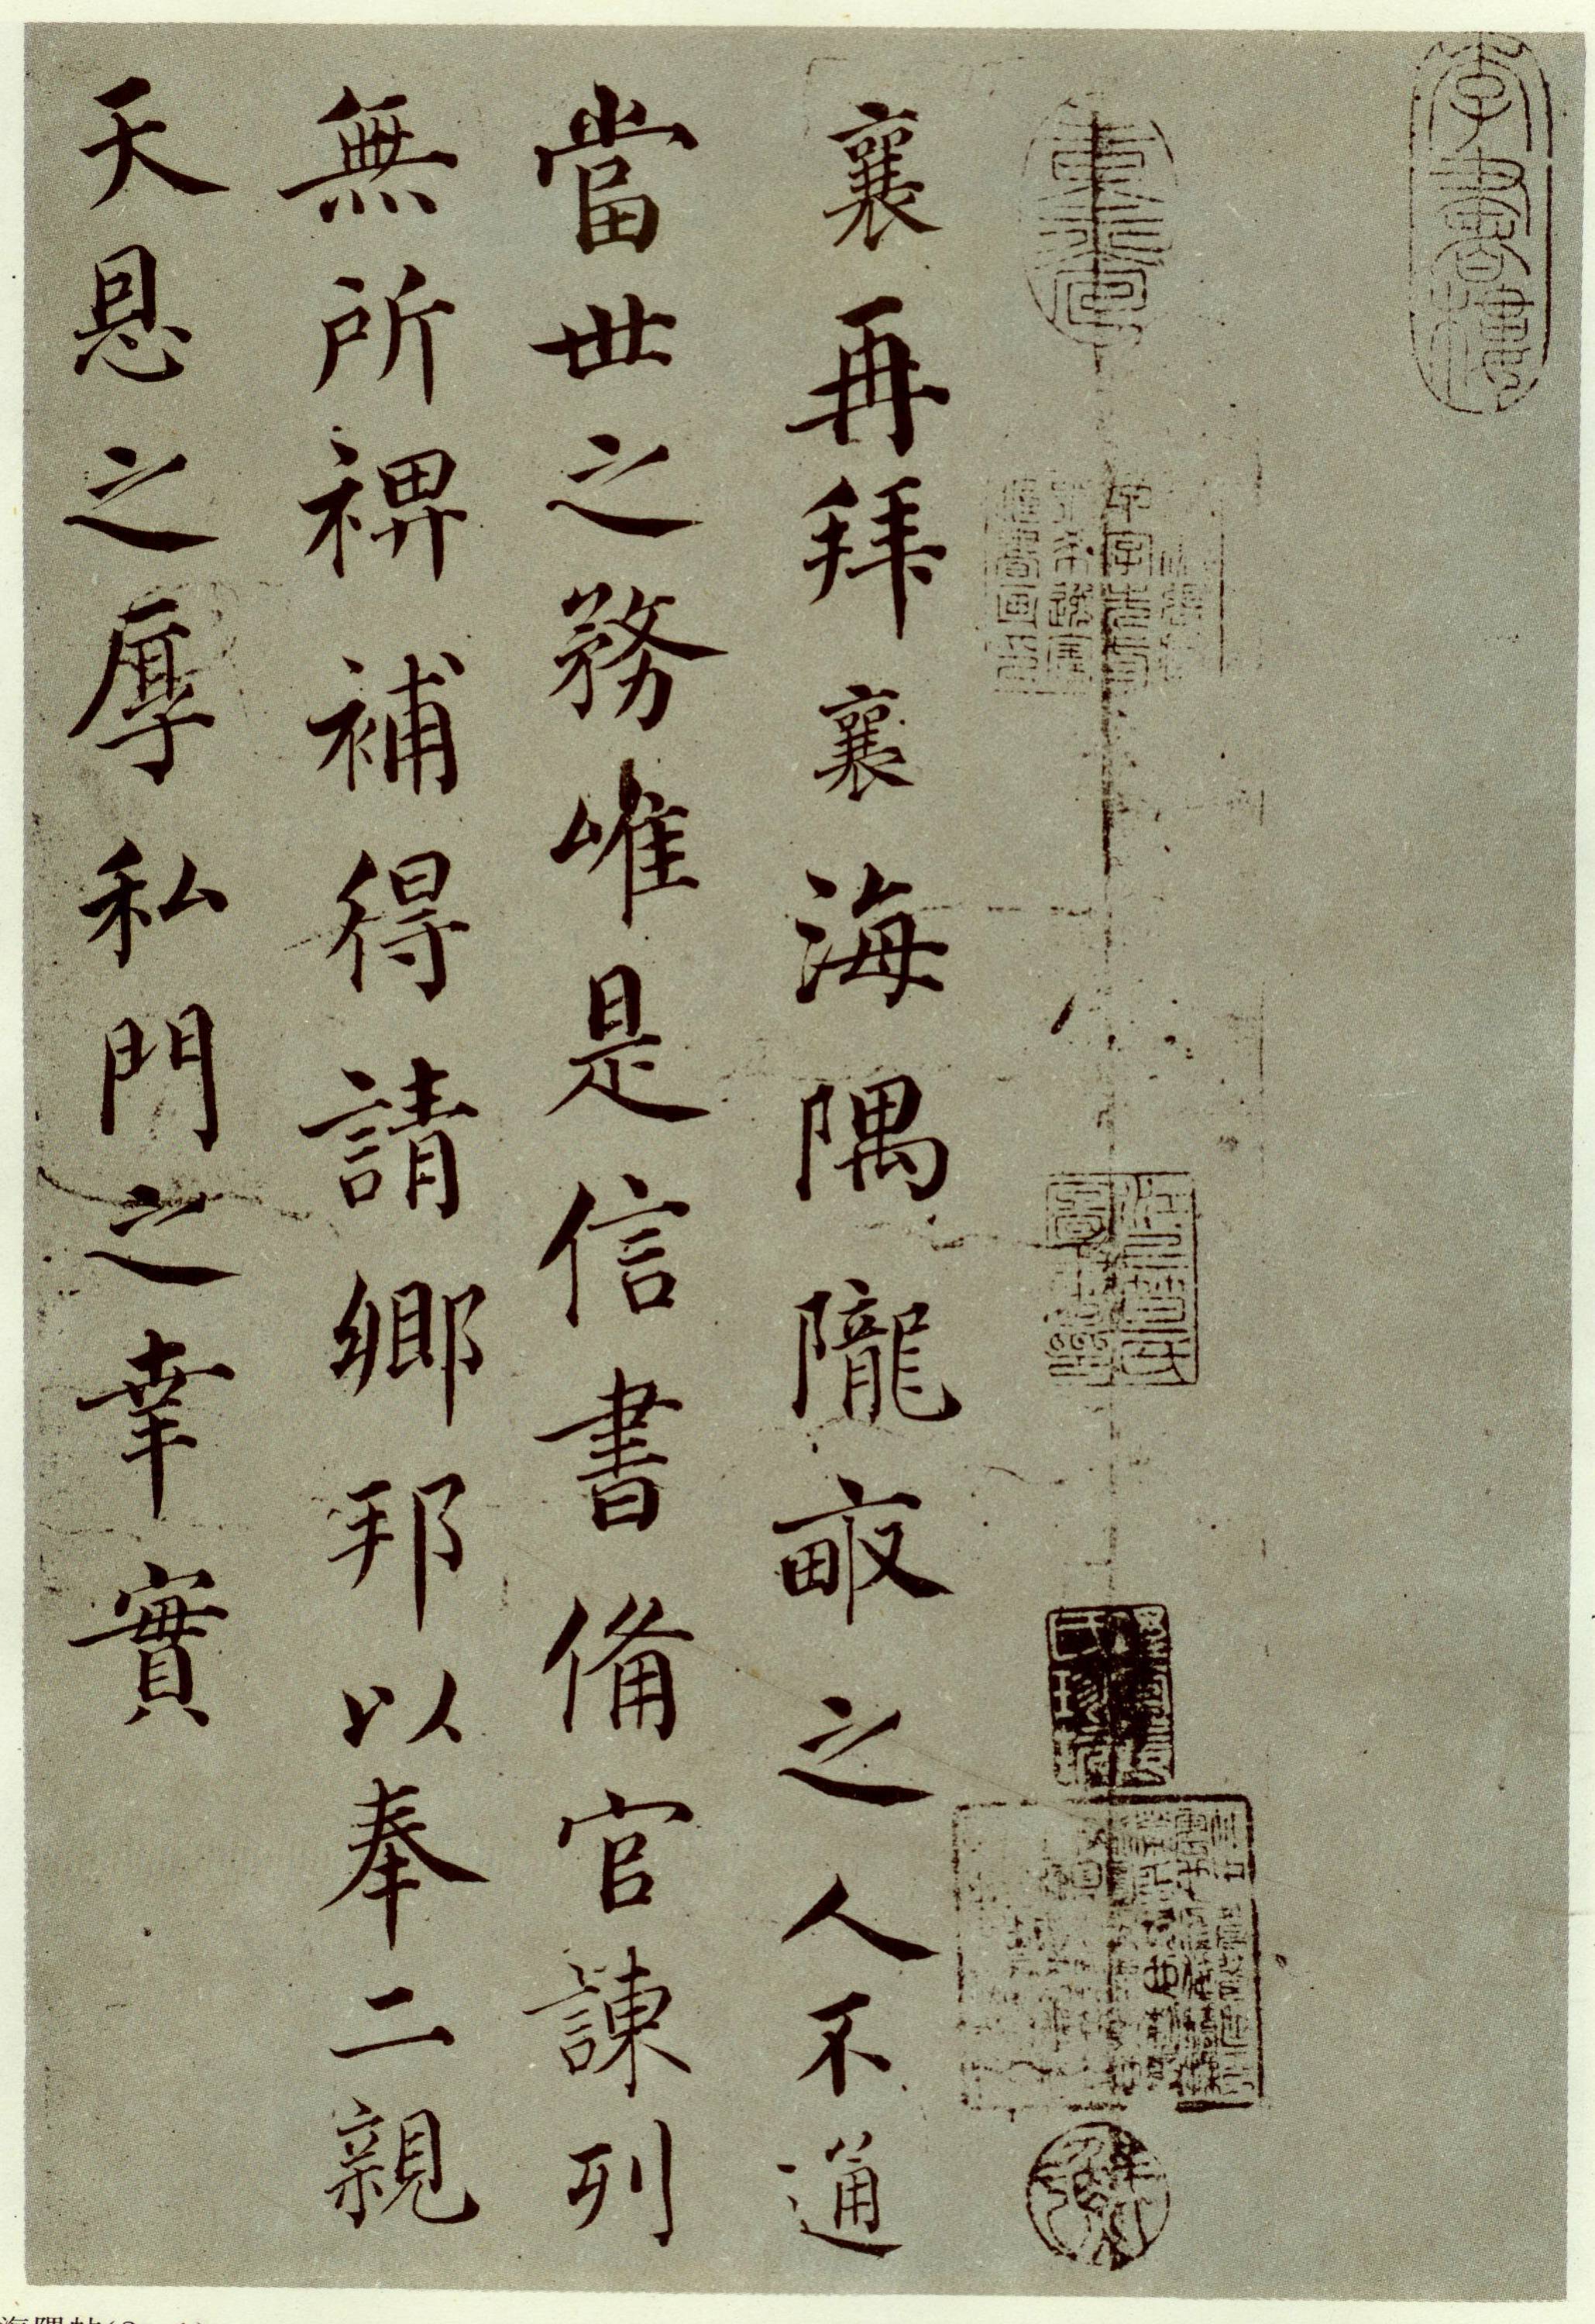 襄再拜襄海隅隴畝之人不通
當世之務唯是信書備官諫列
無所裨補得請鄉邦以奉二親
天恩之厚私門之幸實